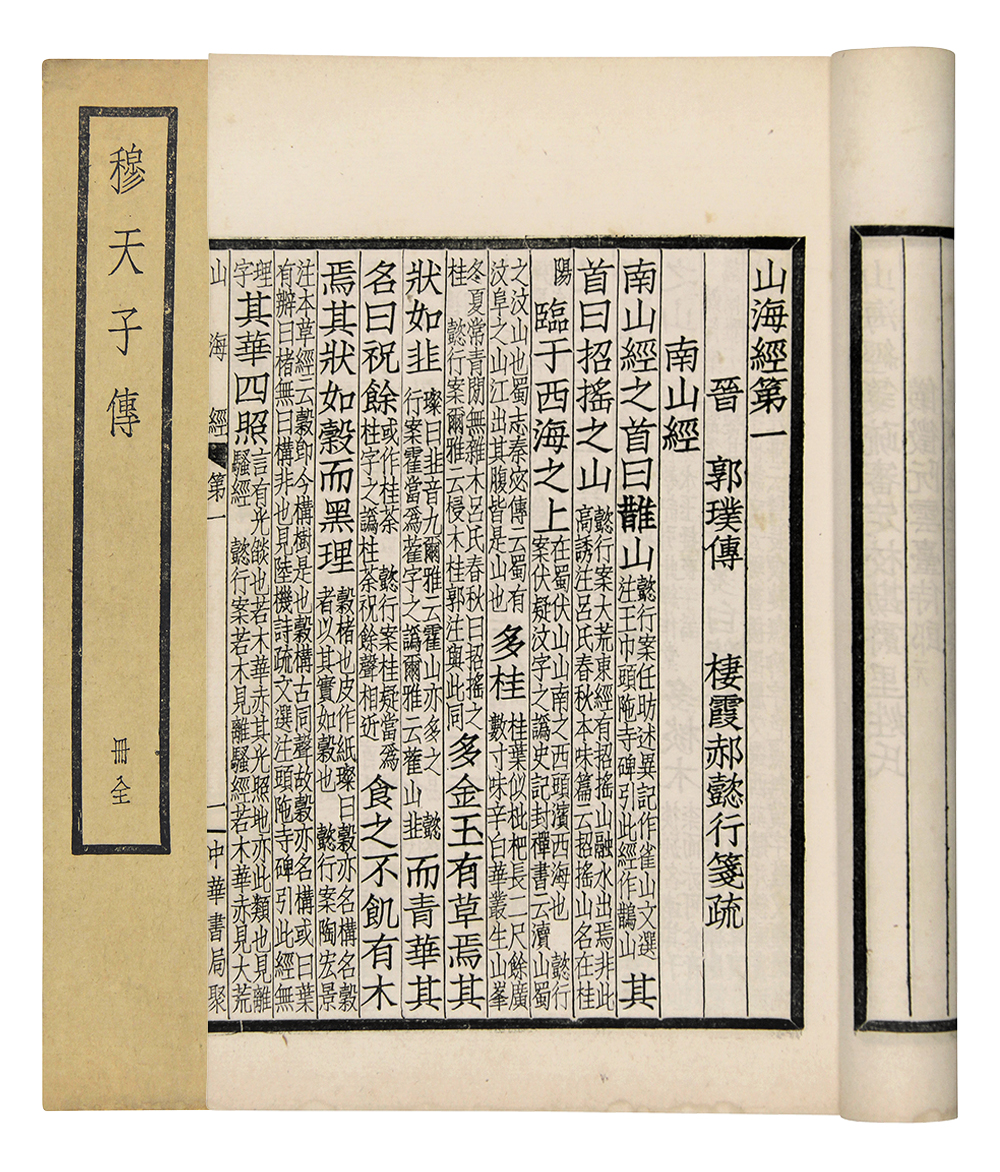 山海經第一
晉 郭璞傳 棲霞郝懿行箋疏
南山經
南山經之首曰䧿山 懿行案任昉述異記作雀山文選注王巾頭陁寺碑引此經作鵲山 其
首曰招搖之山 懿行案大荒東經有招搖山融水出焉非此高誘注呂氏春秋本味篇云招搖山名在桂
陽 臨于西海之上 在蜀伏山山南之西頭濱西海也 懿行案伏疑汶字之譌史記封禪書云瀆山蜀
之汶山也蜀志秦宓傳云蜀有汶阜之山江出其腹皆是山也 多桂 桂葉似枇杷長二尺餘廣數寸味辛白華叢生山峯
冬夏常青閒無雜木呂氏春秋曰招搖之桂 懿行案爾雅云梫木桂郭注與此同 多金玉有草焉其
狀如韭 璨曰韭音九爾雅云霍山亦多之 懿行案霍當爲藿字之譌爾雅云藿山韭 而青華其
名曰祝餘 或作桂荼 懿行案桂疑當爲柱字之譌柱荼祝餘聲相近 食之不飢有木
焉其狀如穀而黑理 穀楮也皮作紙璨曰穀亦名構名穀者以其實如穀也 懿行案陶宏景
注本草經云穀卽今構樹是也穀構古同聲故穀亦名構或曰葉有瓣曰楮無曰構非也見陸機詩疏文選注頭陁寺碑引此經無
理字 其華四照 言有光燄也若木華赤其光照地亦此類也見離騷經 懿行案若木見離騷經若木華赤見大荒
山海經第一 一 中華書局聚
穆天子傳 冊全